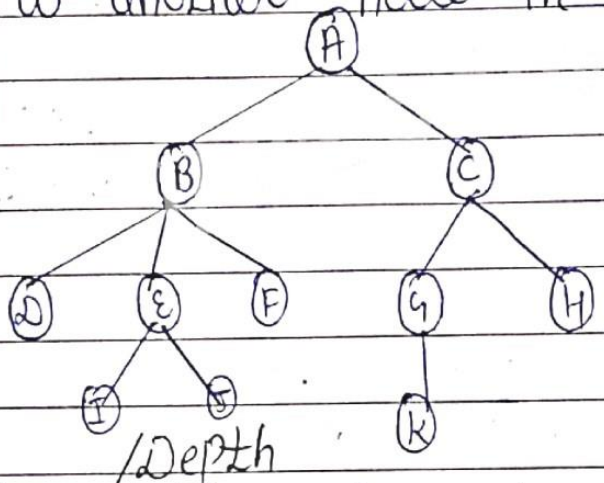 A
B C
D E F G H
I J K
/Depth